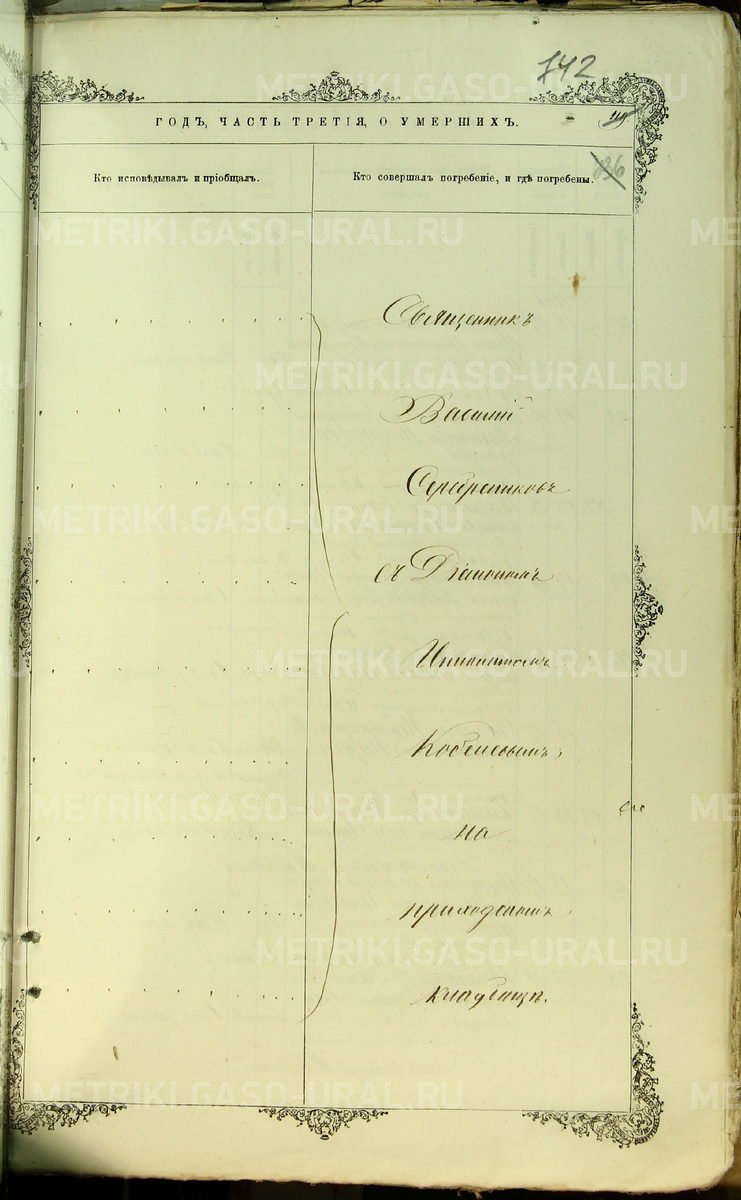 742
ГОДЪ, ЧАСТЬ ТРЕТІЯ, О УМЕРШИХЪ.
Кто исповѣдывалъ и пріобщалъ.
Кто совершалъ погребеніе, и гдѣ погребены.
Священникъ
Василий
Серебрениковъ
съ Діакономъ
Иннокентіемъ
на
приходскомъ
кладбищѣ.
METRIKI.GASO-URAL.RU